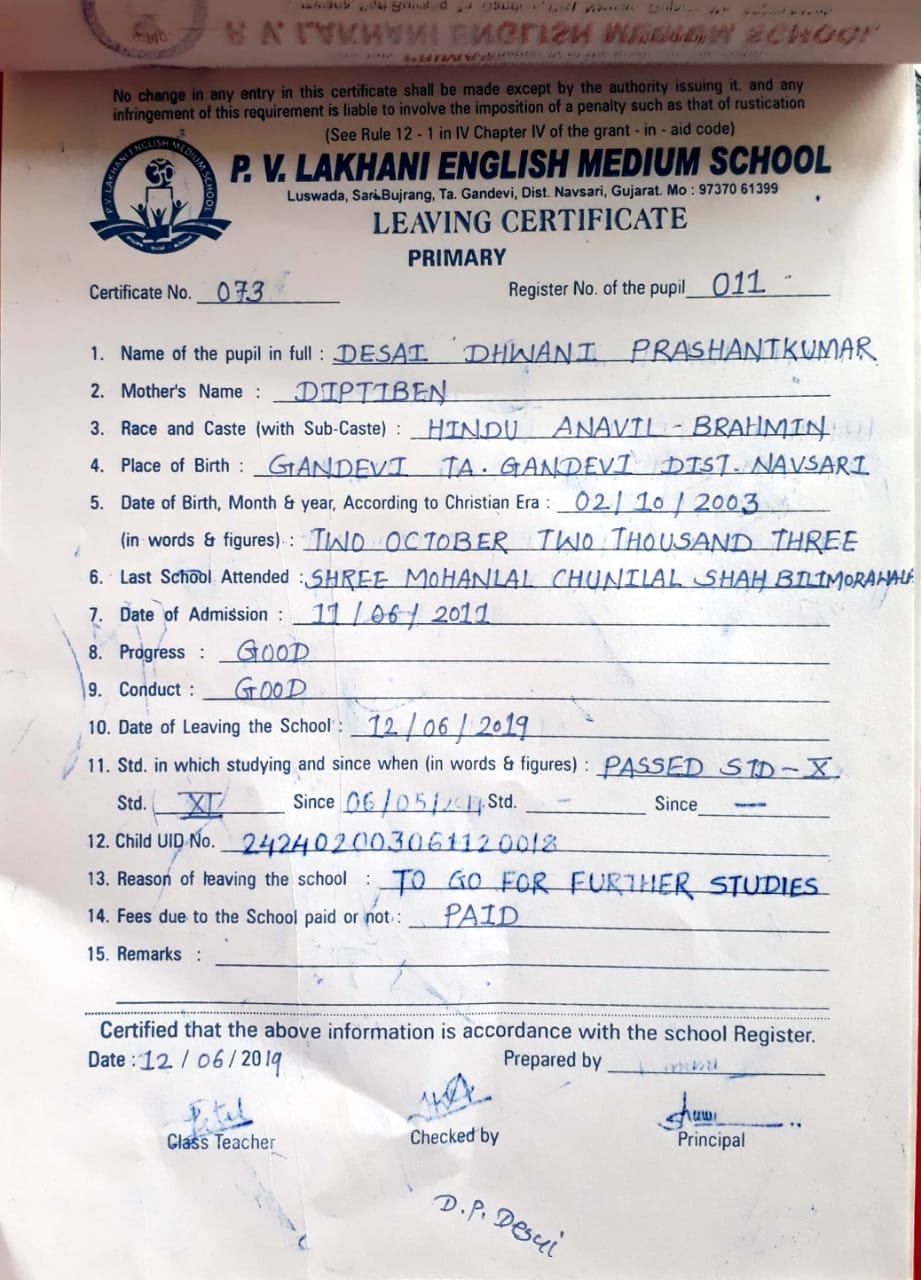 P. V. LAKHANI ENGLISH MEDIUM SCHOOL
No change in any entry in this certificate shall be made except by the authority issuing it. and any
infringement of this requirement is liable to involve the imposition of a penalty such as that of rustication
(See Rule 12 - 1 in IV Chapter IV of the grant - in - aid code)
P. V. LAKHANI ENGLISH MEDIUM SCHOOL
P. V. LAKHANI ENGLISH MEDIUM SCHOOL
Luswada, Sari-Bujrang, Ta. Gandevi, Dist. Navsari, Gujarat. Mo : 97370 61399
LEAVING CERTIFICATE
PRIMARY
Certificate No. 073 Register No. of the pupil 011
1. Name of the pupil in full : DESAI DHWANI PRASHANTKUMAR
2. Mother's Name : DIPTIBEN
3. Race and Caste (with Sub-Caste) : HINDU ANAVIL - BRAHMIN
4. Place of Birth : GANDEVI TA. GANDEVI DIST. NAVSARI
5. Date of Birth, Month & year, According to Christian Era : 02/10/2003
(in words & figures) : TWO OCTOBER TWO THOUSAND THREE
6. Last School Attended : SHREE MOHANLAL CHUNILAL SHAH
7. Date of Admission : 11/06/2011
8. Progress : GOOD
9. Conduct : GOOD
10. Date of Leaving the School : 12/06/2019
11. Std. in which studying and since when (in words & figures) : PASSED STD - X
Std. XI Since Std. - Since -
12. Child UID No. 242402003061120018
13. Reason of leaving the school : TO GO FOR FURTHER STUDIES
14. Fees due to the School paid or not : PAID
15. Remarks :
Certified that the above information is accordance with the school Register.
Date : 12/06/2019 Prepared by
Class Teacher Checked by Principal
D. P. Desai